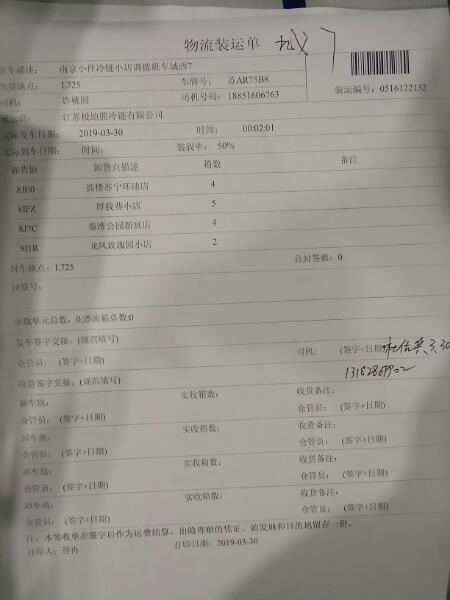 物流装运单 城7
班车描述： 南京小件冷链小店调拨班车城西7
出货地点： L725 车牌号： 苏AR75B8
司机： 许桃园 司机号码： 18851606763 装运编号：0516122132
承运商： 江苏极地熊冷链有限公司
实际发车日期： 2019-03-30 时间： 00:02:01
实际到车日期： 时间： 装载率： 50%
卸货地 卸货点描述 箱数 备注
8JE0 鼓楼苏宁环球店 4
8IFZ 厚载巷小店 5
8J7C 秦淮公园新寓店 4
8I1R 龙凤玫瑰园小店 2
封车地点：L725 总封签数：0
封签号：
承载单元总数：0,漂流箱总数:0
发车签字交接：(规范填写)
仓管员： (签字+日期) 司机： (签字+日期) 3.30
收货签字交接：(规范填写) 13182869902
卸车地： 实收箱数： 收货备注：
仓管员： (签字+日期) 仓管员： (签字+日期)
卸车地： 实收箱数： 收货备注：
仓管员： (签字+日期) 仓管员： (签字+日期)
卸车地： 实收箱数： 收货备注：
仓管员： (签字+日期) 仓管员： (签字+日期)
卸车地： 实收箱数： 收货备注：
仓管员： (签字+日期) 仓管员： (签字+日期)
注：本签收单在签字后作为运费结算，出险理赔的凭证。始发地和目的地留存一份。
打印人：答冉 打印日期：2019-03-30